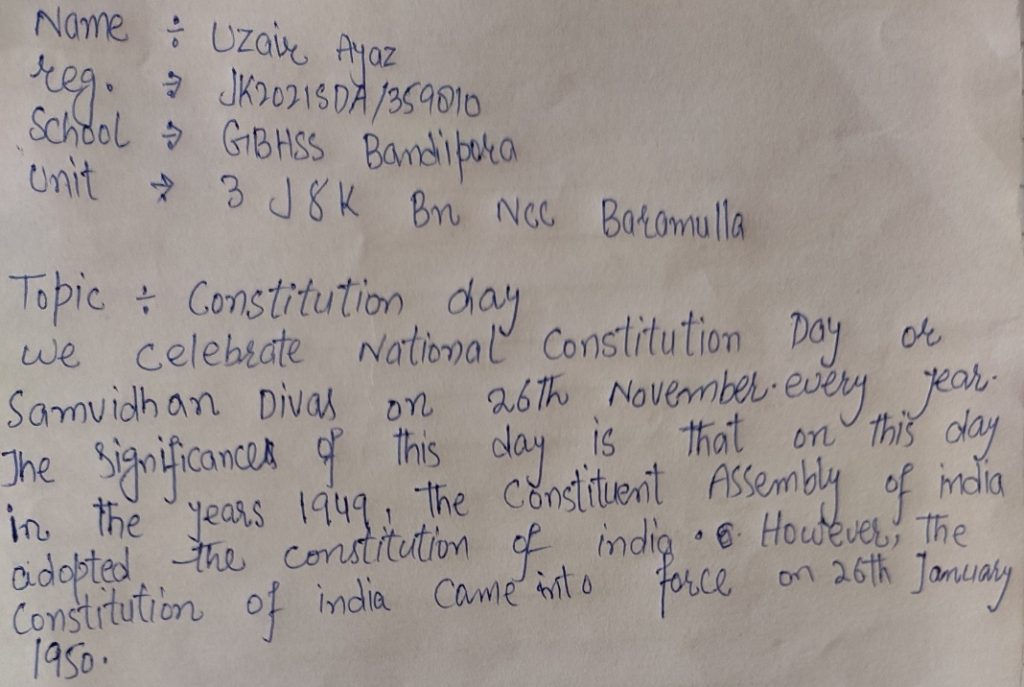 Name ÷ Uzair Ayaz
reg. ⇒ JK2021SDA/359010
School ⇒ GBHSS Bandipora
Unit → 3 J&K Bn NCC Baramulla
Topic ÷ Constitution day
We celebrate National Constitution Day or
Samvidhan Divas on 26th November every year.
The Significances of this day is that on this day
in the years 1949, the Constituent Assembly of india
adopted the constitution of india. However, the
Constitution of india came into force on 26th January
1950.